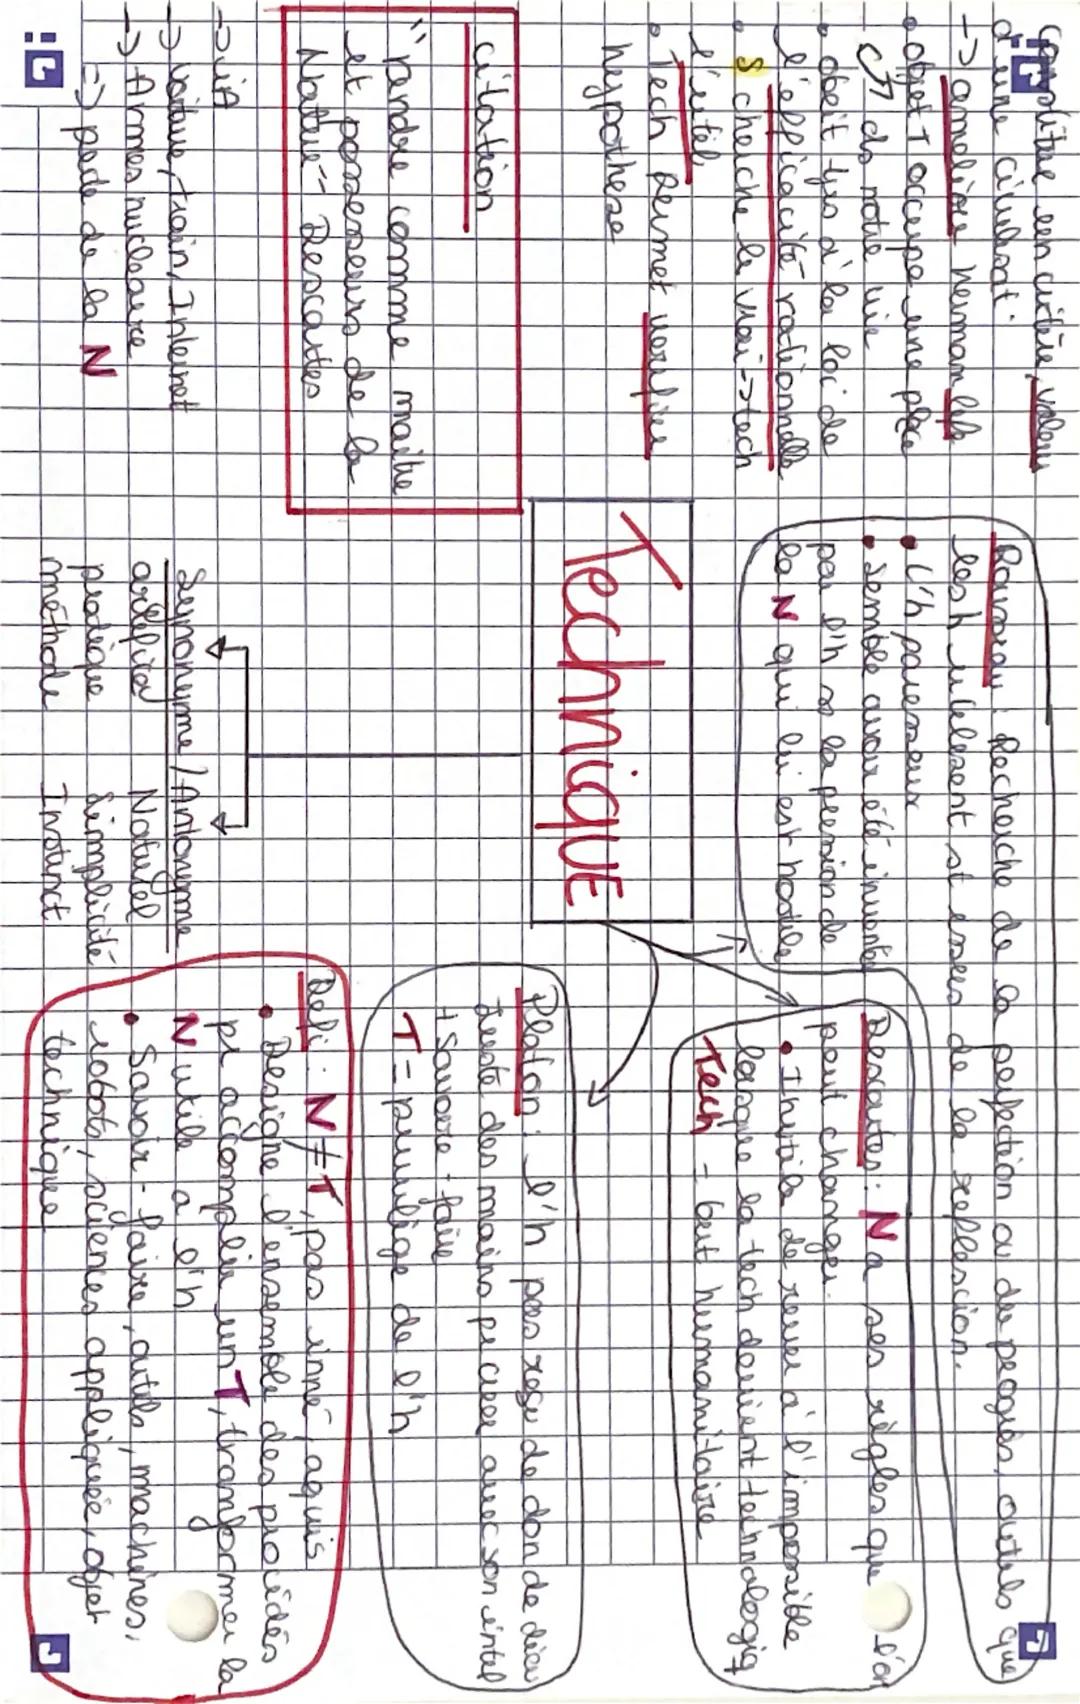 constitue un critère, valeur
d'une civilisat°.
-> améliore humain life
• objet T occupe une place
ds notre vie
• obeit tjs à la loi de
l'efficacité rationnelle
• S cherche le vrai -> tech
l'utile
• Tech permet verifier
hypothese
Citation
" rendre comme maitre
et possesseurs de la
Nature" Descartes
-> iA
-> voiture, train, Internet
-> Armes nucleaire
=> perte de la N
Technique
Rousseau : Recherche de la perfection ou du progrès, outils que
les h utilisent st issus de la reflescion.
• L'h paresseux
• Semble avoir été inventé
par l'h ss la pression de
la N qui lui est hostile
Descartes : N a ses règles que l'on
peut changer.
• Inutile de rever à l'impossible
lorsque la tech devient technologiq
Tech = but humanitaire
Platon : l'h pas reçu de don de dieu
juste des mains pr créer avec son intel
+ savoire-faire
T = privilège de l'h
Synonyme / Antonyme
artefical Naturel
pratique simplicité
méthode Instinct
Defi : N ≠ T, pas inné, aquis
• Designe l'ensemble des procédés
pr accomplir un T, tranformer la
N utile a l'h
• Savoir-faire, outils, machines,
robots, sciences appliquée, objet
technique